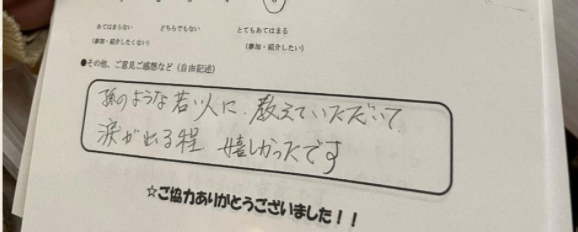 あてはまらない どちらでもない とてもあてはまる
(参加・紹介したくない) (参加・紹介したい)
●その他、ご意見ご感想など(自由記述)
孫のような若い人に、教えていただいて
涙が出る程 嬉しかったです
☆ご協力ありがとうございました!!